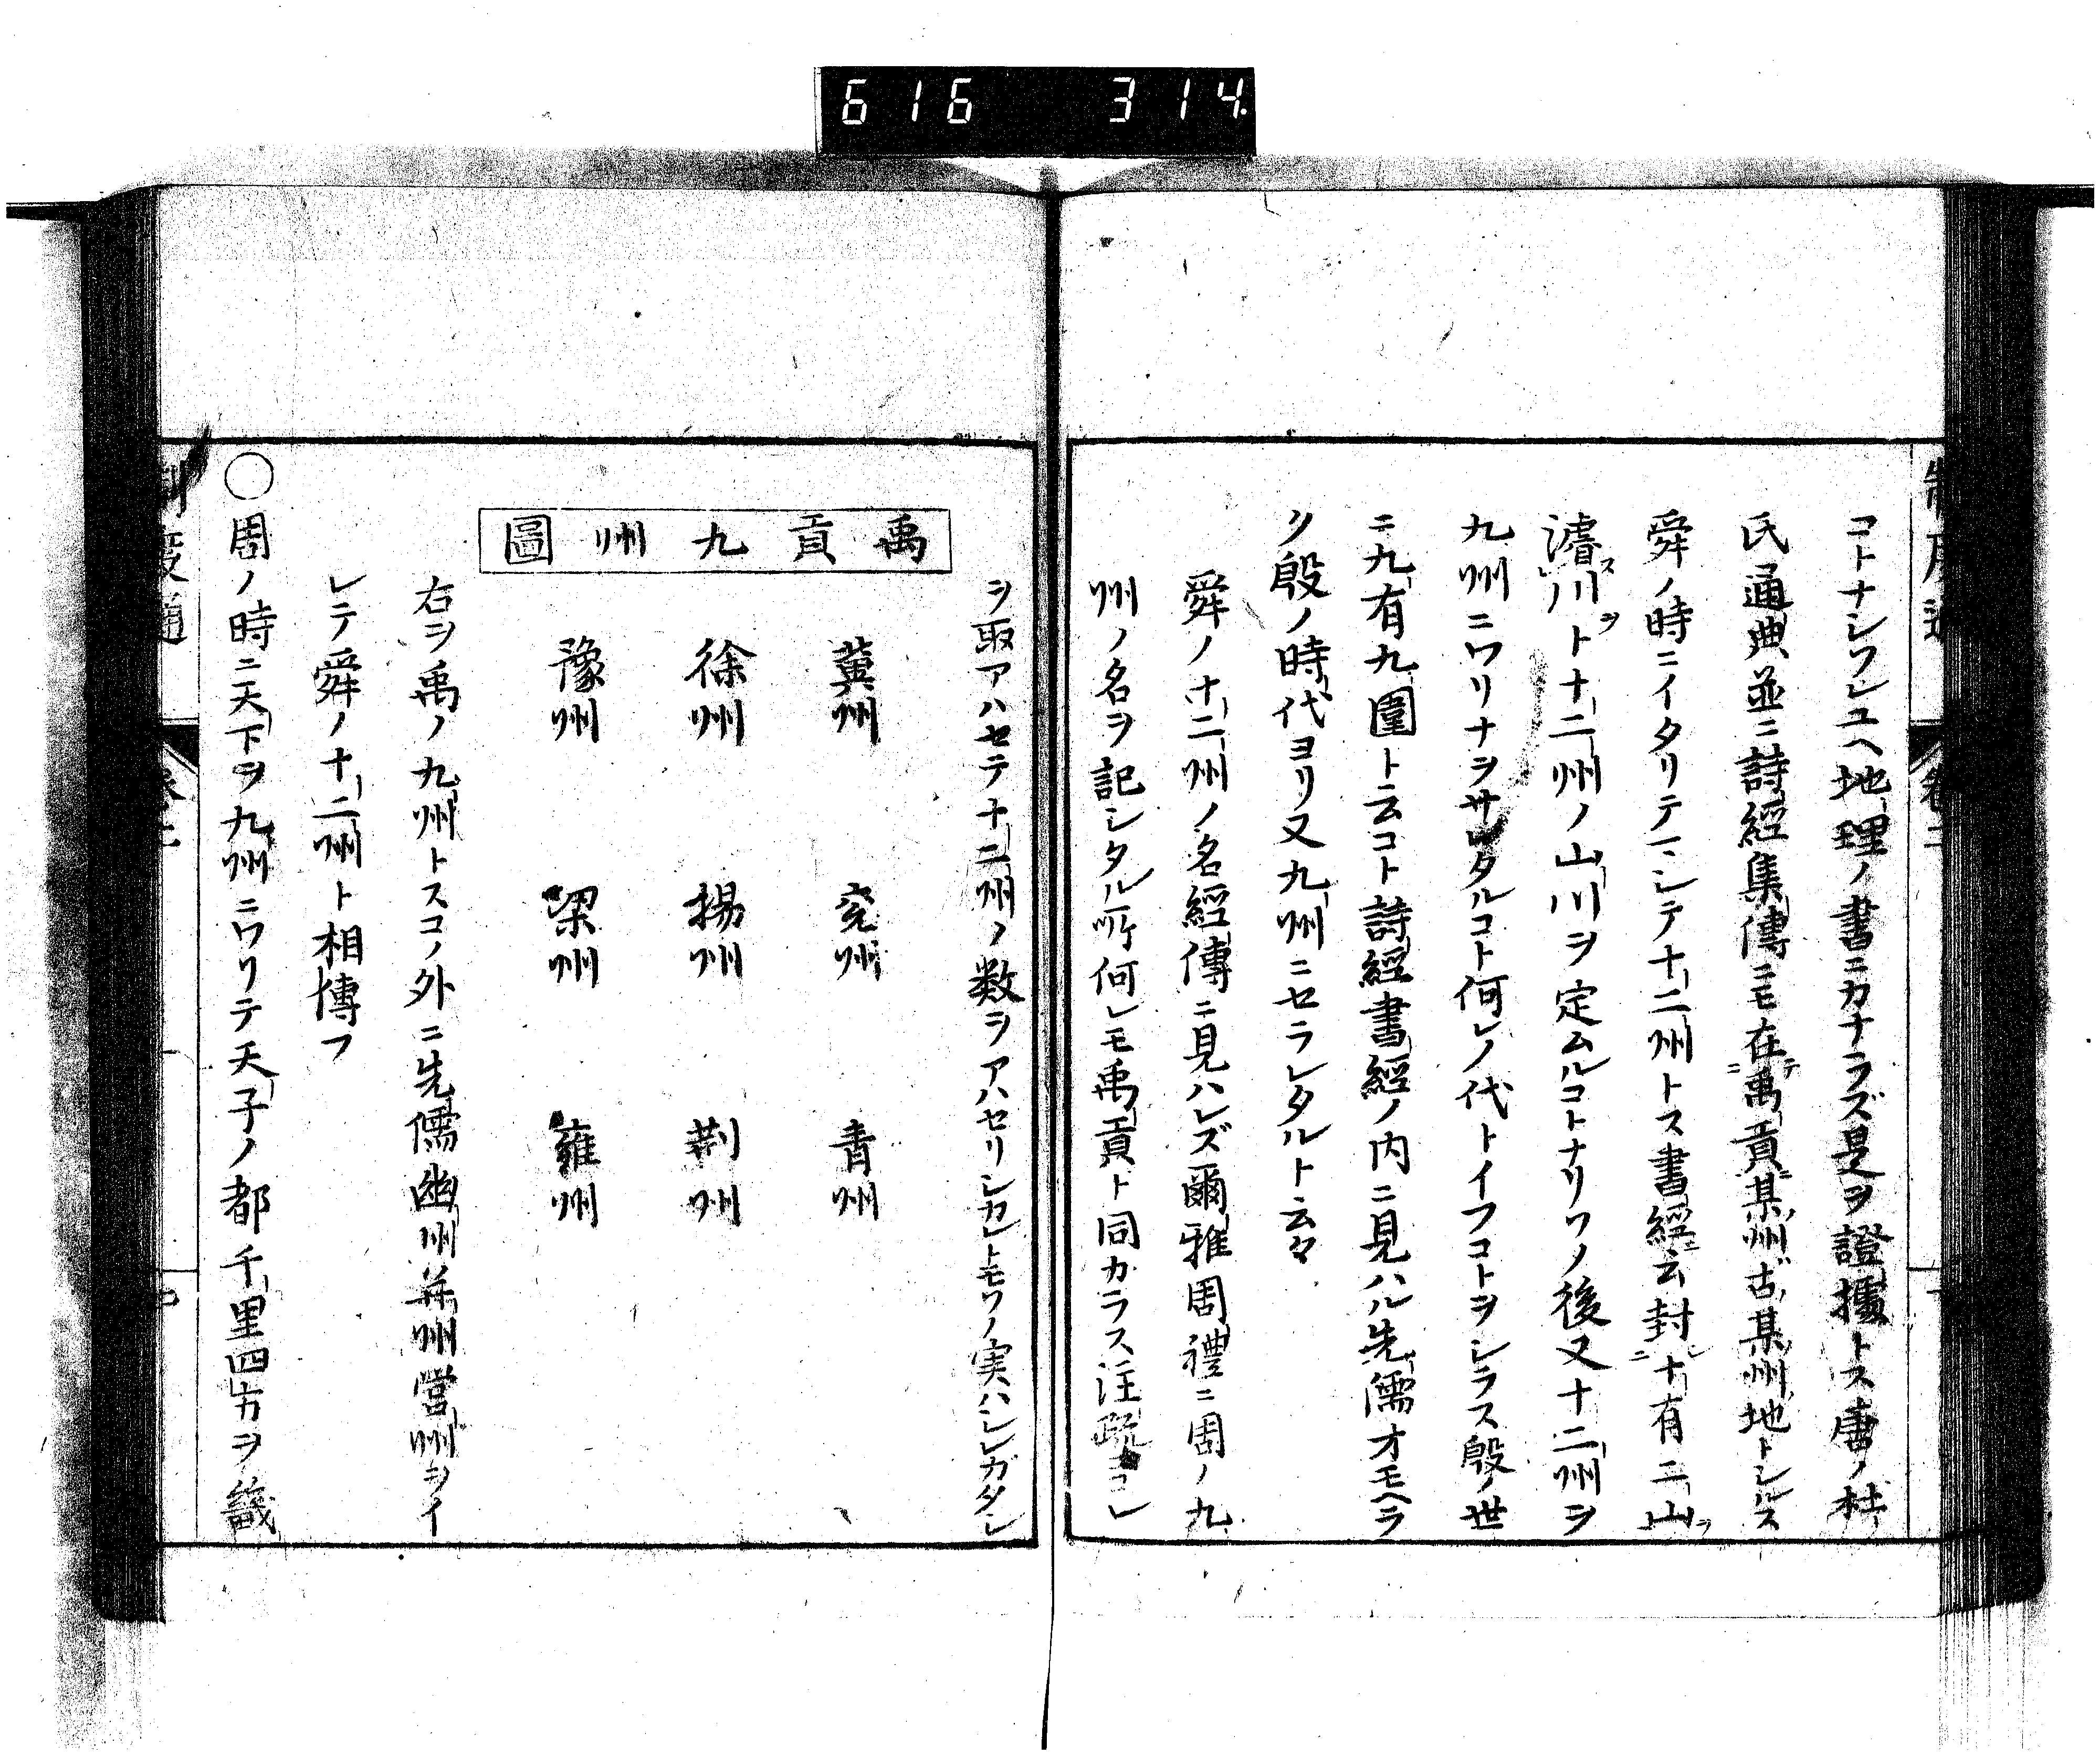 616 314
制度通 卷二
コトナシワレユヘ地理ノ書ニカナラズ是ヲ證據トス唐ノ杜
氏通典並ニ詩經集傳ニモ在禹貢某州古某州地トシルス
舜ノ時ニイタリテ一ンシテ十二州トス書經ニ云封十有二山
濬川ト十二州ノ山川ヲ定ムルコトナリワノ後又十二州ヲ
九州ニワリナヲサレタルコト何レノ代トイフコトヲシラス殷ノ世
ニ九有九圍ト云コト詩經書經ノ内ニ見ハル先儒オモヘラ
ク殷ノ時代ヨリ又九州ニセラレタルト云々
舜ノ十二州ノ名經傳ニ見ハレズ爾雅周禮ニ周ノ九
州ノ名ヲ記シタル所何レモ禹貢ト同カラス注疏コレ
ヲ取アハセテ十二州ノ数ヲアハセリシカレトモワノ実ハシレガタシ
禹貢九州圖
冀州 兗州 青州
徐州 揚州 荊州
豫州 梁州 雍州
右ヲ禹ノ九州トスコノ外ニ先儒幽州并州営州ヲイ
レテ舜ノ十二州ト相博フ
○周ノ時ニ天下ヲ九州ニワリテ天子ノ都千里四方ヲ畿
制度通 卷二